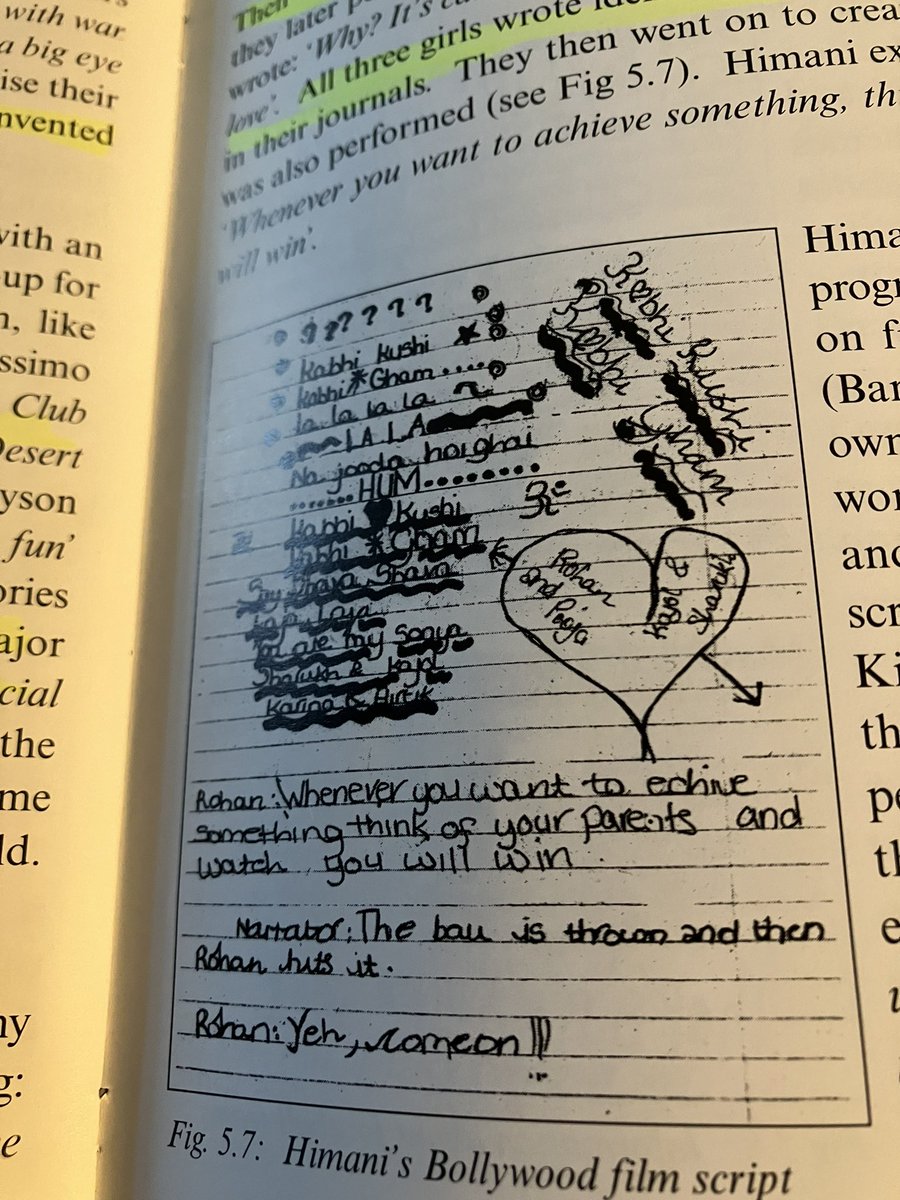 with war
a big eye
ise their
nvented
with an
up for
n, like
ssimo
Club
Desert
yson
fun'
ories
ajor
cial
the
me
ld.
ny
g:
e
Then
they later
wrote: 'Why? It's
love'. All three girls wrote
in their journals. They then went on to crea
was also performed (see Fig 5.7). Himani ex
'Whenever you want to achieve something, th
will win'.
? ? ? ? ? ?
kabhi kushi
kabhi * Gham ....
la la la la
LA LA
Na jooda hoighai
....... HUM ........
Kabhi ♥ Kushi
Kabhi * Gham
Say Shava Shava
You are my Sonya
Sharukh & Kajol
Karina & Hritik
Kabhi Kushi
Kabhi Gham
Rohan
and Pooja
Rohan: Whenever you want to echive
something think of your parents and
watch you will win.
Narrator: The ball is thrown and then
Rohan huts it.
Rohan: Yeh, someon!!!
Fig. 5.7: Himani's Bollywood film script
Hima
progr
on f
(Bar
own
wor
and
scr
Ki
th
pe
th
e